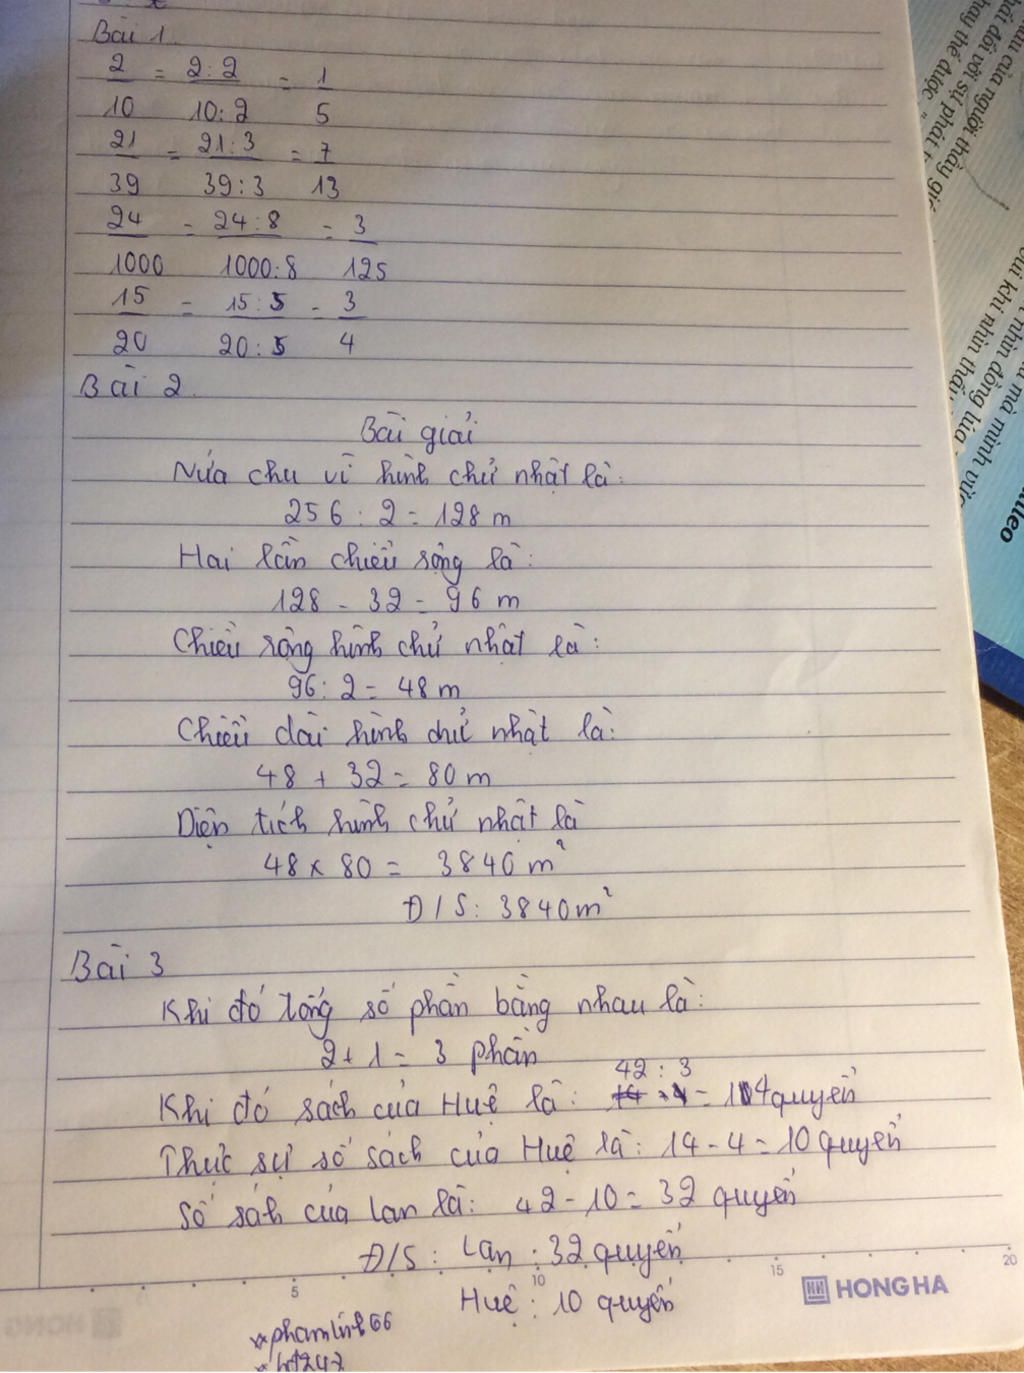 Bài 1
2 = 2:2 = 1
10 10:2 5
21 = 21:3 = 7
39 39:3 13
24 = 24:8 = 3
1000 1000:8 125
15 = 15:5 = 3
20 20:5 4
Bài 2
Bài giải
Nửa chu vi hình chử nhật là:
256 : 2 = 128 m
Hai lần chiều rộng là:
128 - 32 = 96 m
Chiều rộng hình chử nhật là:
96 : 2 = 48 m
Chiều dài hình chử nhật là:
48 + 32 = 80 m
Diện tích hình chử nhật là
48 x 80 = 3840 m²
Đ/S: 3840 m²
Bài 3
Khi đó tổng số phần bằng nhau là:
2 + 1 = 3 phần
42 : 3
Khi đó sách của Huệ là: = 14 quyển
Thực sự số sách của Huệ là: 14 - 4 = 10 quyển
Số sách của Lan là: 42 - 10 = 32 quyển
Đ/S: Lan : 32 quyển
Huệ : 10 quyển
5 10 15 20
HONG HA
phamlinh66